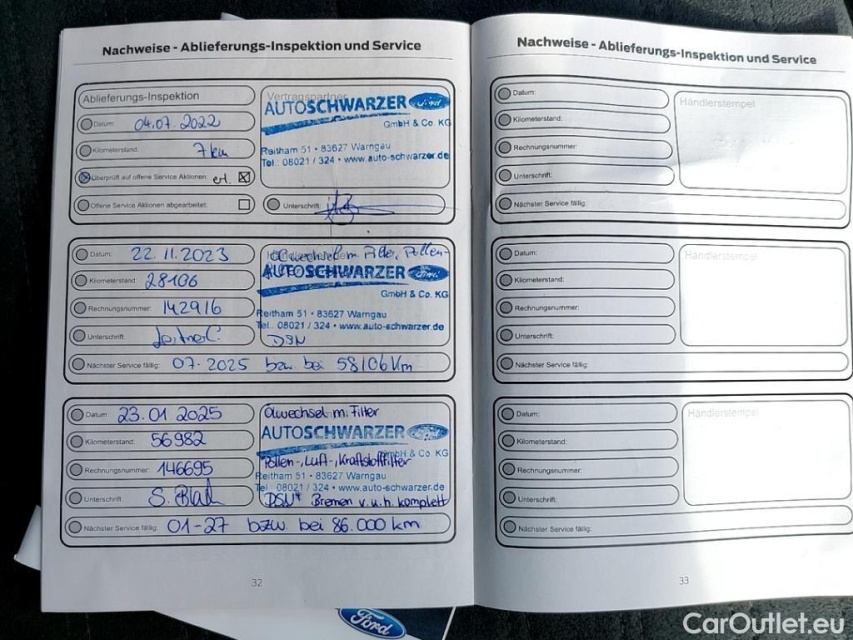 Nachweise - Ablieferungs-Inspektion und Service
Ablieferungs-Inspektion
Datum: 04.07.2022
Kilometerstand: 7km
Überprüft auf offene Service Aktionen: erl. ☒
Offene Service Aktionen abgearbeitet: ☐
Vertragspartner
AUTOSCHWARZER Ford
GmbH & Co. KG
Reitham 51 • 83627 Warngau
Tel.: 08021 / 324 • www.auto-schwarzer.de
Unterschrift:
Datum: 22.11.2023
Kilometerstand: 28106
Rechnungsnummer: 142916
Unterschrift:
Ölwechsel m. Filter, Pollen-
AUTOSCHWARZER Ford
GmbH & Co. KG
Reitham 51 • 83627 Warngau
Tel.: 08021 / 324 • www.auto-schwarzer.de
DSN
Nächster Service fällig: 07-2025 bzw bei 58106 Km
Datum: 23.01 2025
Kilometerstand: 56982
Rechnungsnummer: 146695
Unterschrift:
Ölwechsel m. Filter
AUTOSCHWARZER Ford
GmbH & Co. KG
Pollen-, Luft-, Kraftstofffilter
Reitham 51 • 83627 Warngau
Tel.: 08021 / 324 • www.auto-schwarzer.de
Bremen v.u.h. komplett
Nächster Service fällig: 01-27 bzw bei 86.000 km
32
Nachweise - Ablieferungs-Inspektion und Service
Datum:
Kilometerstand:
Rechnungsnummer:
Unterschrift:
Nächster Service fällig:
Händlerstempel
Datum:
Kilometerstand:
Rechnungsnummer:
Unterschrift:
Nächster Service fällig:
Händlerstempel
Datum:
Kilometerstand:
Rechnungsnummer:
Unterschrift:
Nächster Service fällig:
Händlerstempel
33
Ford
CarOutlet.eu